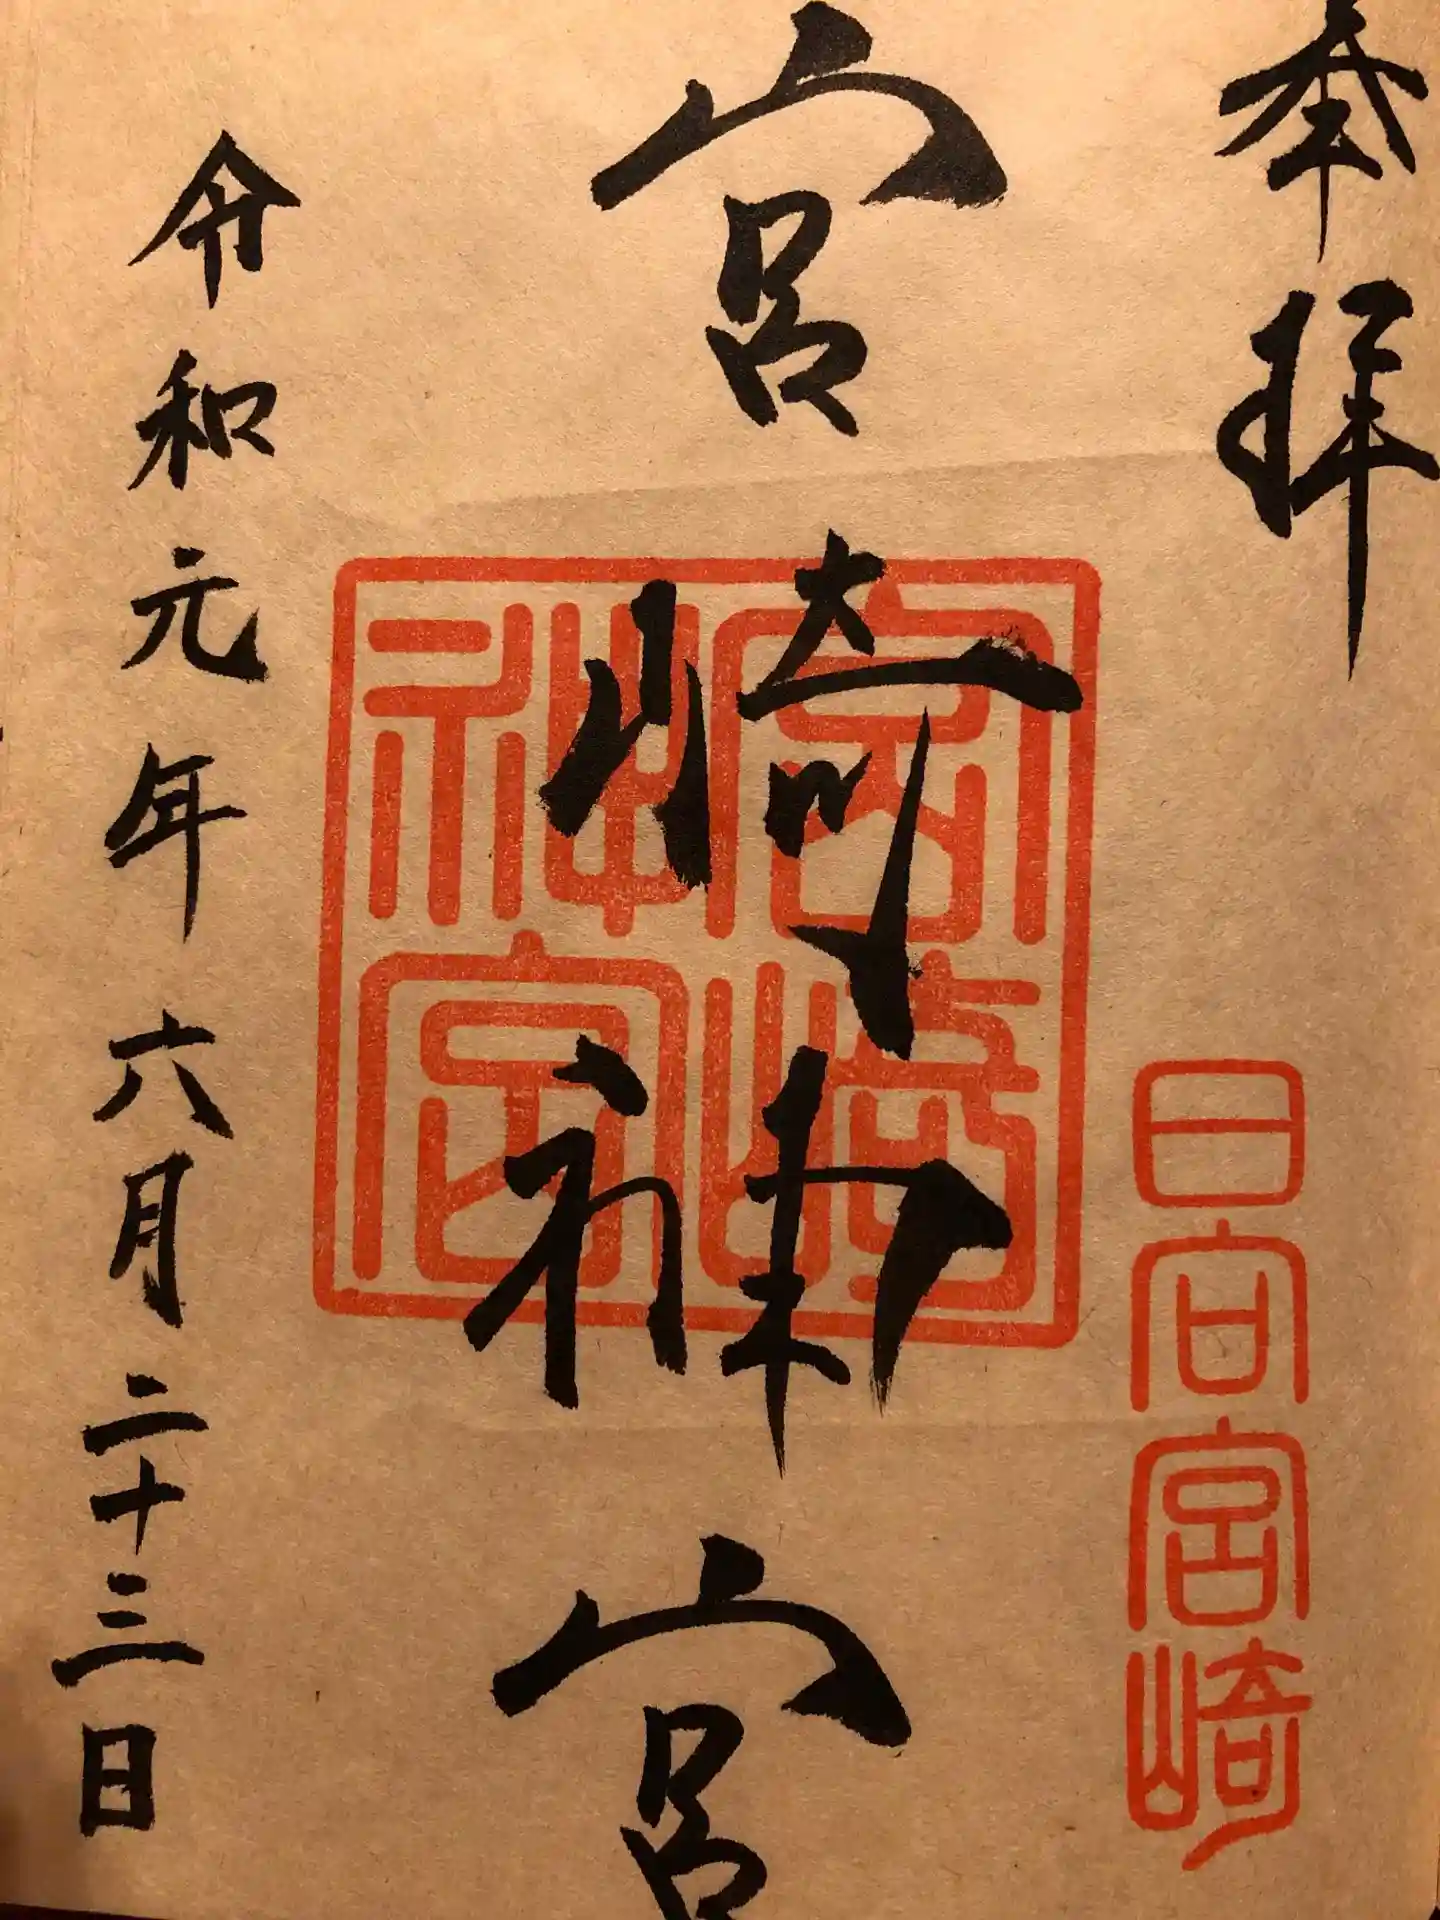 奉拝
日向宮崎
宮崎神宮
宮崎
神宮
令和元年六月二十三日